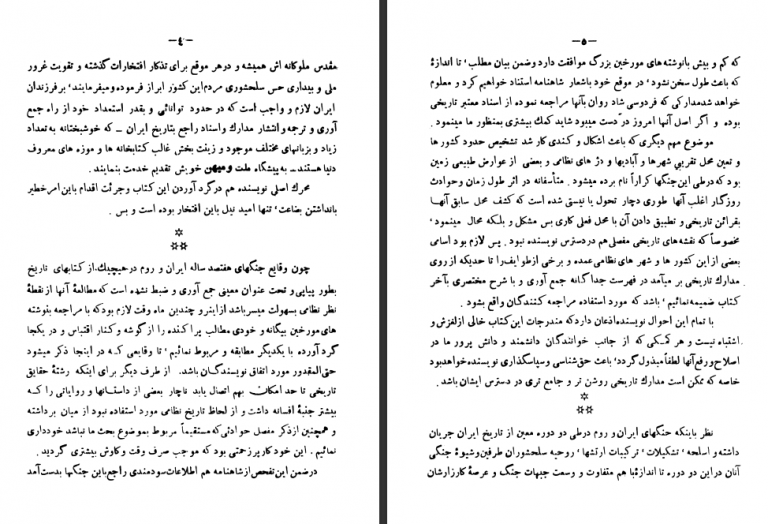 -۵-
که کم و بیش بانوشته های مورخین بزرگ موافقت دارد وضمن بیان مطلب ' تا اندازهٔ
که باعث طول سخن نشود ' در موقع خود باشعار شاهنامه استناد خواهیم کرد و معلوم
خواهد شدمدارکی که فردوسی شاد روان بآنها مراجعه نموده از اسناد معتبر تاریخی
بوده و اگر اصل آنها امروز در دست میبود شاید کمك بیشتری بمنظور ما مینمود .
موضوع مهم دیگری که باعث اشکال و کندی کار شد تشخیص حدود کشور ها
و تعیین محل تقریبی شهرها و آبادیها و دژ های نظامی و بعضی از عوارض طبیعی زمین
بود که درطی این جنگها کراراً نام برده میشود . متأسفانه در اثر طول زمان وحوادث
روزگار اغلب آنها طوری دچار تحول یا نیستی شده است که کشف محل سابق آنها
بقرائن تاریخی و تطبیق دادن آن با محل فعلی کاری بس مشکل و بلکه محال مینمود '
مخصوصاً که نقشه های تاریخی مفصلی هم در دسترس نویسنده نبود . پس لازم بود اسامی
بعضی از این کشور ها و شهر های نظامی عمده و برخی از طوایف را تا حدیکه از روی
مدارك تاریخی بر میآمد در فهرست جدا گانه جمع آوری و با شرح مختصری بآخر
کتاب ضمیمه نمائیم ' باشد که مورد استفاده مراجعه کنندگان واقع بشود .
با تمام این احوال نویسنده اذعان دارد که مندرجات این کتاب خالی از لغزش و
اشتباه نیست و هر کمکی که از جانب خوانندگان دانشمند و دانش پرور ما در
اصلاح و رفع آنها لطفاً مبذول گردد ' باعث حق شناسی و سپاسگذاری نویسنده خواهد بود
خاصه که ممکن است مدارك تاریخی روشن تر و جامع تری در دسترس ایشان باشد .
نظر باینکه جنگهای ایران و روم درطی دو دوره معین از تاریخ ایران جریان
داشته و اسلحه ' تشکیلات ' ترکیبات ارتشها ' روحیه سلحشوران طرفین و شیوهٔ جنگی
آنان در این دو دوره تا اندازه‌ٔ با هم متفاوت و وسعت جبهات جنگ و عرصهٔ کارزارشان
-٤-
مقدس ملوکانه اش همیشه و در هر موقع برای تذکار افتخارات گذشته و تقویت غرور
ملی و بیداری حس سلحشوری مردم این کشور ابراز فرموده و میفرمایند ' بر فرزندان
ایران لازم و واجب است که در حدود توانائی و بقدر استعداد خود از راه جمع
آوری و ترجمه و انتشار مدارك و اسناد راجع بتاریخ ایران ـ که خوشبختانه به تعداد
زیاد و بزبانهای مختلف موجود و زینت بخش غالب کتابخانه ها و موزه های معروف
دنیا هستند ـ به پیشگاه ملت و میهن خویش تقدیم خدمت بنمایند .
محرك اصلی نویسنده هم در گرد آوردن این کتاب و جرئت اقدام باین امر خطیر
با نداشتن بضاعت ' تنها امید نیل باین افتخار بوده است و بس .
چون وقایع جنگهای هفتصد ساله ایران و روم در هیچیك از کتابهای تاریخ
بطور پیاپی و تحت عنوان معینی جمع آوری و ضبط نشده است که مطالعهٔ آنها از نقطهٔ
نظر نظامی بسهولت میسر باشد از اینرو چندین ماه وقت لازم بود که با مراجعه بنوشته
های مورخین بیگانه و خودی مطالب پراکنده را از گوشه و کنار اقتباس و در یکجا
گرد آورده با یکدیگر مطابقه و مربوط نمائیم ' تا وقایعی که در اینجا ذکر میشود
حتی المقدور مورد اتفاق نویسندگان باشد . از طرف دیگر برای اینکه رشتهٔ حقایق
تاریخی تا حد امکان بهم اتصال یابد ناچار بعضی از داستانها و روایاتی را که
بیشتر جنبهٔ افسانه داشت و از لحاظ تاریخ نظامی مورد استفاده نبود از میان برداشته
و همچنین از ذکر مفصل حوادثی که مستقیماً مربوط بموضوع بحث ما نباشد خودداری
نمائیم . این خود کار پر زحمتی بود که موجب صرف وقت و کاوش بیشتری گردید .
در ضمن این تفحص از شاهنامه هم اطلاعات سودمندی راجع باین جنگها بدست آمد